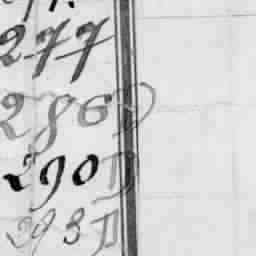 277
286 D
290 D
293 D